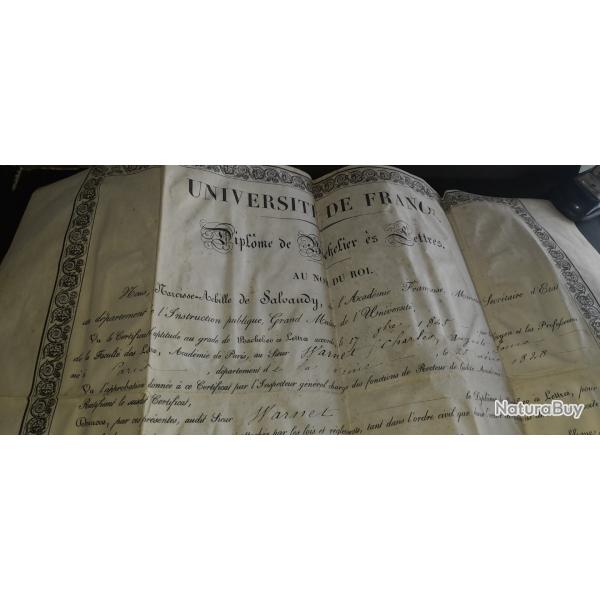 UNIVERSITÉ DE FRANCE
Diplôme de Bachelier ès Lettres.
AU NOM DU ROI.
Nous, Narcisse-Achille de Salvandy, de l'Académie Française, Ministre Secrétaire d'État
au département de l'Instruction publique, Grand Maître de l'Université,
Vu le Certificat d'aptitude au grade de Bachelier ès Lettres accordé le 17 9bre 1845 par le Doyen et les Professeurs
de la Faculté des Lettres, Académie de Paris, au Sieur Warnet Charles Auguste
né à Paris département de la Seine le 25 1828
Vu l'approbation donnée à ce Certificat par l'Inspecteur général chargé des fonctions de Recteur de ladite Académie
Ratifiant le susdit Certificat,
Donnons, par ces présentes, audit Sieur Warnet le Diplôme ès Lettres, pour
par les lois et règlements, tant dans l'ordre civil que
NaturaBuy